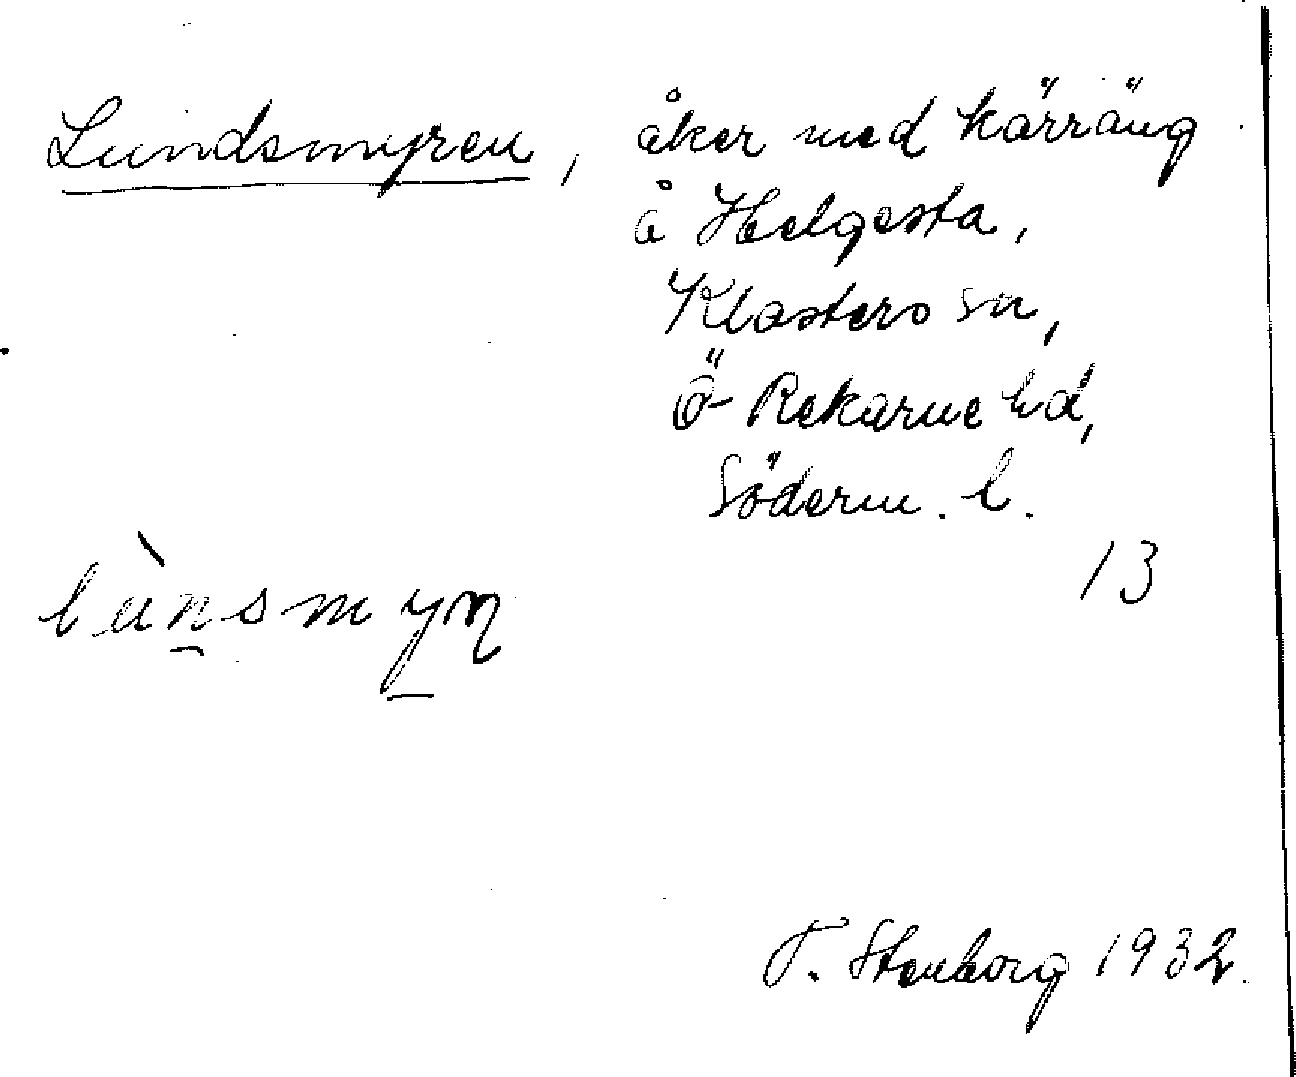 Lundsmyren, åker med kärräng
å Helgesta,
Klosters sn,
Ö- Rekarne hd,
Söderm. l.
13
lùnsmyn
T. Stenborg 1932.